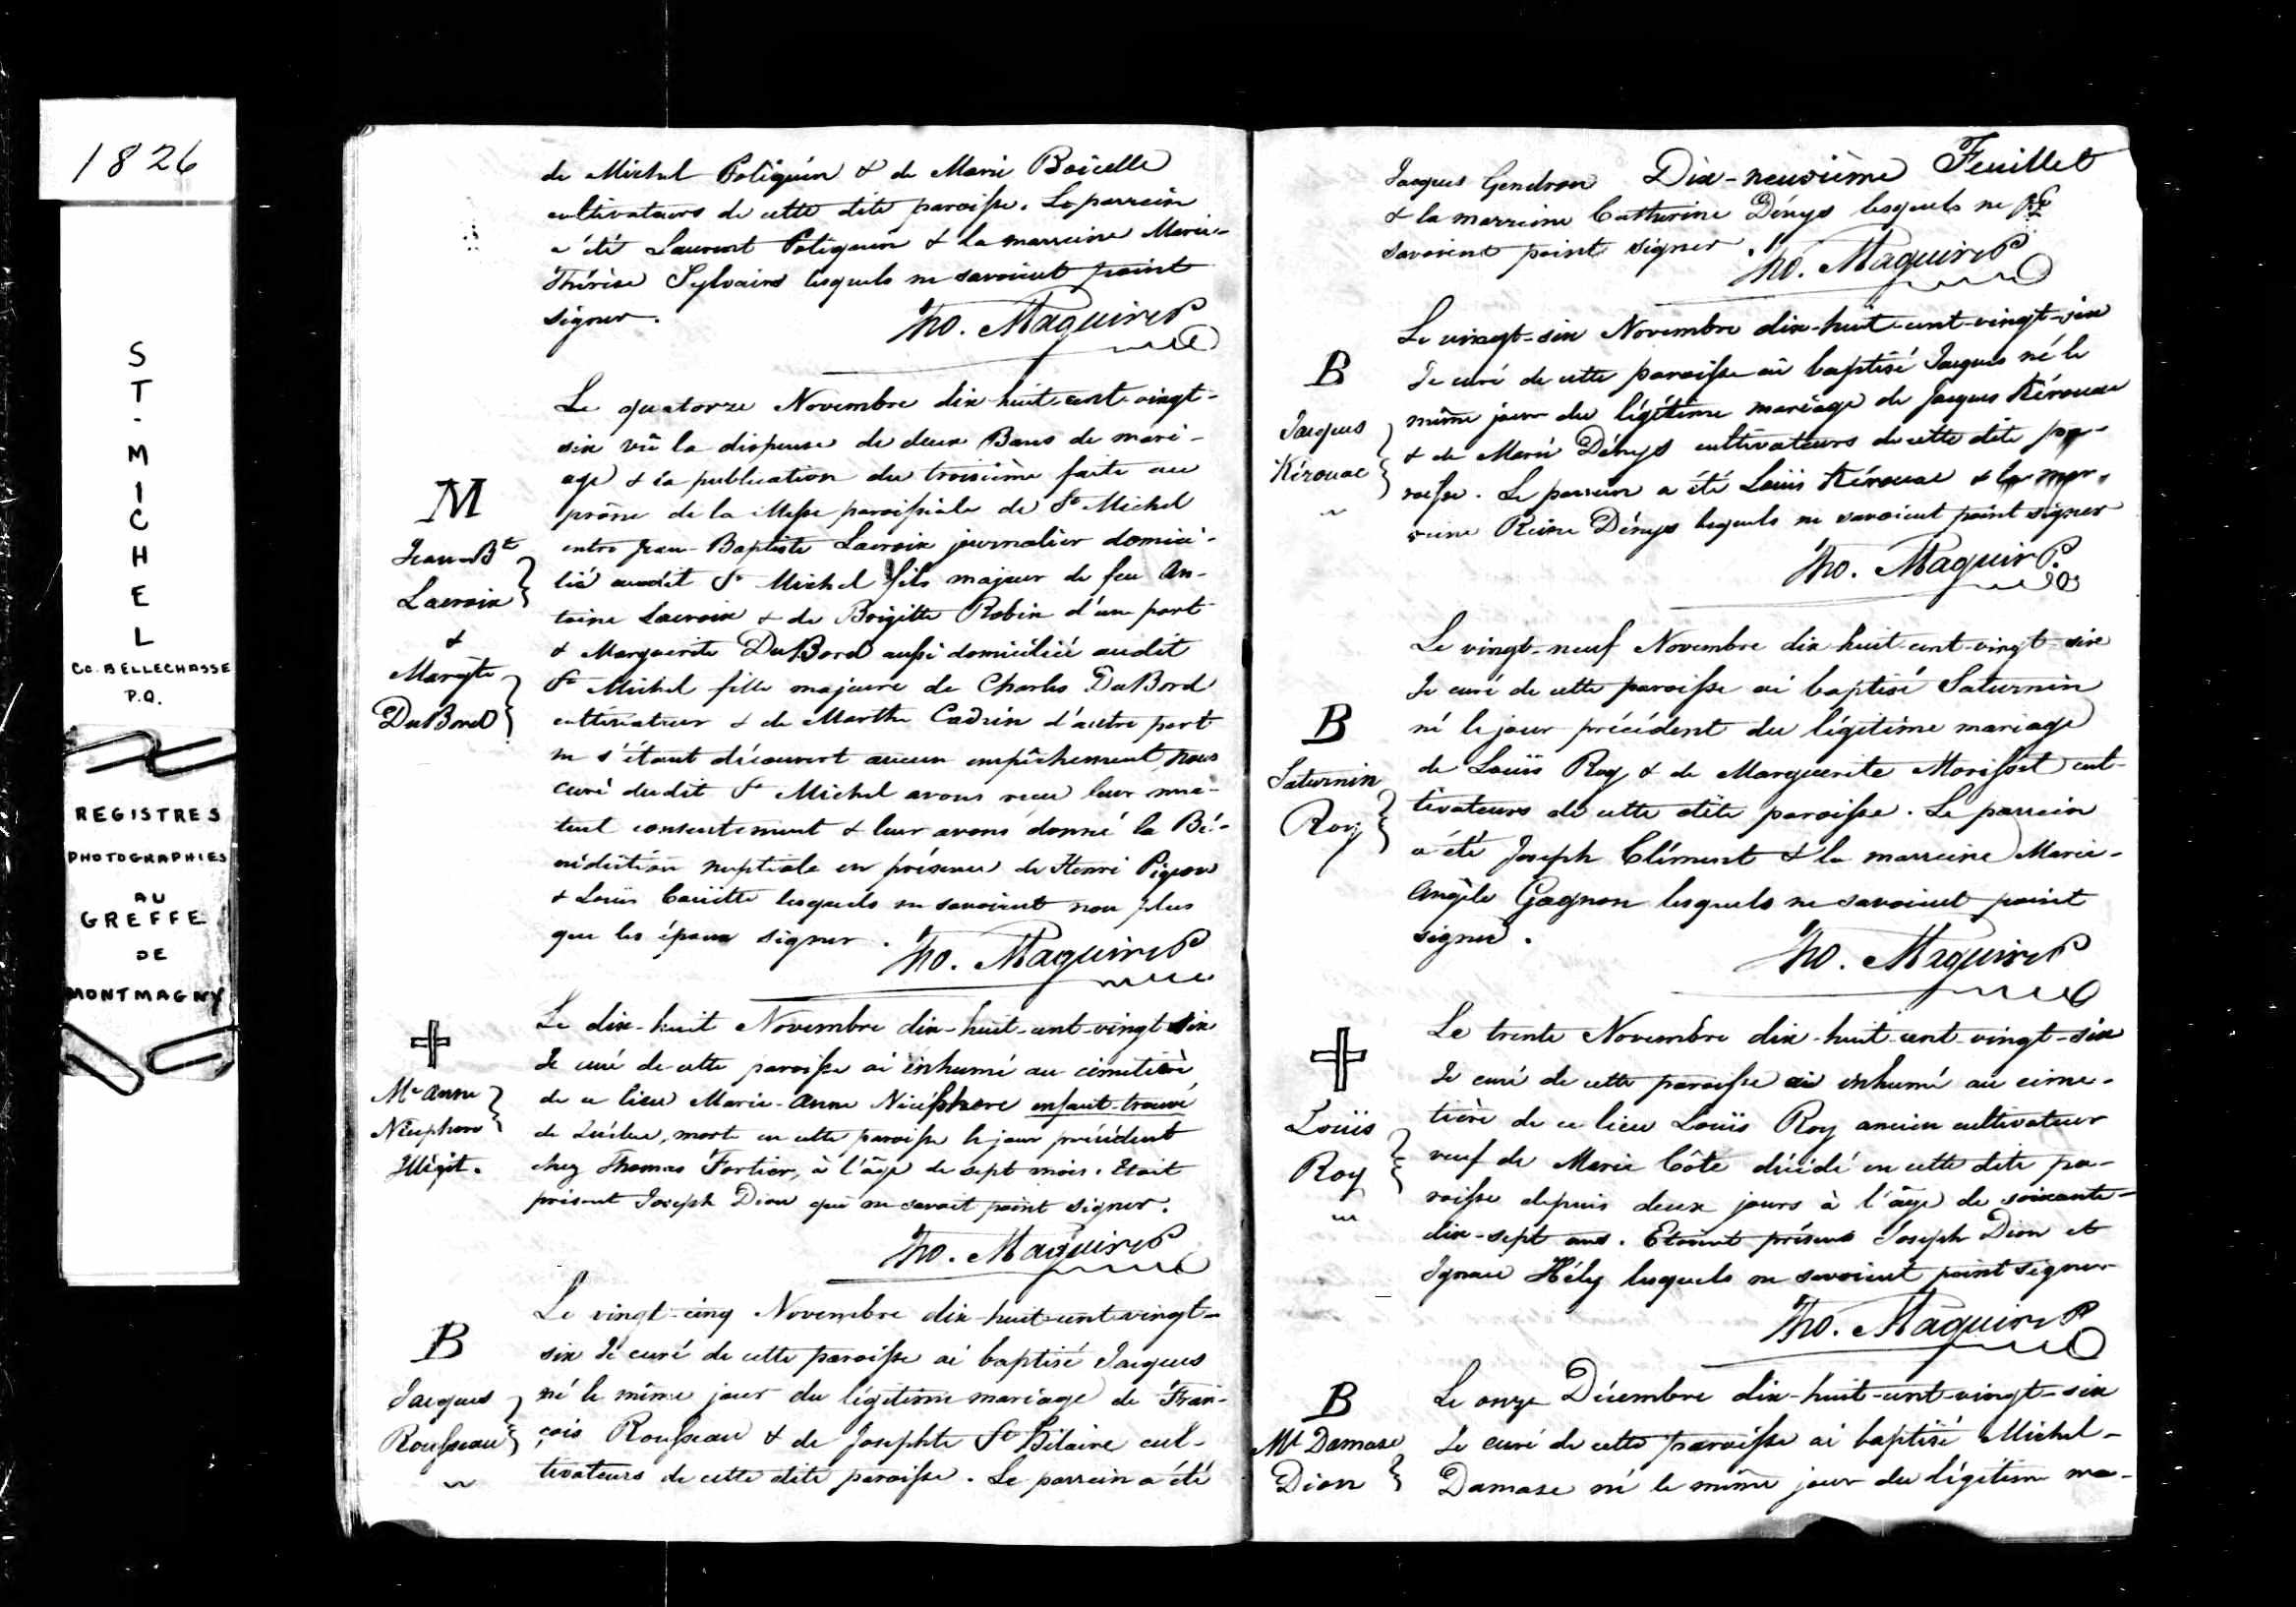 1826
ST. MICHEL
Co. BELLECHASSE
P.Q.
REGISTRES
PHOTOGRAPHIES
AU
GREFFE
DE
MONTMAGNY
de Michel Poliquin & de Marie Boicelle
cultivateurs de cette dite paroisse. Le parrein
a été Laurent Poliquin & la marreine Marie-
Thérèse Sylvains lesquels ne savoient point
signer.
Tho. Maguire P
M
Jean-Bte
Lacroix
&
Margte
DuBord
Le quatorze Novembre dix-huit-cent-vingt-
six vû la dispense de deux Bans de mari-
age & la publication du troisième faite au
prône de la Messe paroissiale de St Michel
entre Jean-Baptiste Lacroix journalier domici-
lié audit St Michel fils majeur de feu An-
toine Lacroix & de Brigitte Robin d'une part
& Marguerite DuBord aussi domiciliée audit
St Michel fille majeure de Charles DuBord
cultivateur & de Marthe Cadrin d'autre part
ne s'étant découvert aucun empêchement, nous
curé dudit St Michel avons reçu leur mu-
tuel consentement & leur avons donné la Bé-
nédiction nuptiale en présence de Henri Pigeon
& Louis lesquels ne savoient non plus
que les époux signer.
Tho. Maguire P
Me Anne
Nicephore
Illégit.
Le dix-huit Novembre dix-huit-cent-vingt-six
Je curé de cette paroisse ai inhumé au cimetière
de ce lieu Marie-Anne Nicéphore enfant-trouvé
de Québec, morte en cette paroisse le jour précédent
chez Thomas Fortier, à l'âge de sept mois. Etait
présent Joseph Dion qui ne savait point signer.
Tho. Maguire P
B
Jacques
Rousseau
Le vingt-cinq Novembre dix-huit-cent-vingt-
six Je curé de cette paroisse ai baptisé Jacques
né le même jour du légitime mariage de Fran-
çois Rousseau & de Josephte St Hilaire cul-
tivateurs de cette dite paroisse. Le parrein a été
Dix-neuvième Feuillet
Jacques Gendron
& la marreine Catherine Dénys lesquels ne
savoient point signer.
Tho. Maguire P
B
Jacques
Kérouac
Le vingt-six Novembre dix-huit-cent-vingt-six
Je curé de cette paroisse ai baptisé Jacques né le
même jour du légitime mariage de Jacques Kérouac
& de Marie Dénys cultivateurs de cette dite pa-
roisse. Le parrein a été Louis Kérouac & la mar-
reine Reine Dénys lesquels ne savoient point signer
Tho. Maguire P.
B
Saturnin
Roy
Le vingt-neuf Novembre dix-huit-cent-vingt-six
Je curé de cette paroisse ai baptisé Saturnin
né le jour précédent du légitime mariage
de Louis Roy & de Marguerite Morisset cul-
tivateurs de cette dite paroisse. Le parrein
a été Joseph Clément & la marreine Marie-
Angèle Gagnon lesquels ne savoient point
signer.
Tho. Maguire P
Louis
Roy
Le trente Novembre dix-huit-cent-vingt-six
Je curé de cette paroisse ai inhumé au cime-
tière de ce lieu Louis Roy ancien cultivateur
veuf de Marie Côte décédé en cette dite pa-
roisse depuis deux jours à l'âge de soixante-
dix-sept ans. Etoient présens Joseph Dion et
Ignace Hély lesquels ne savoient point signer
Tho. Maguire P
B
Ml Damase
Dion
Le onze Décembre dix-huit-cent-vingt-six
Je curé de cette paroisse ai baptisé Michel-
Damase né le même jour du légitime ma-